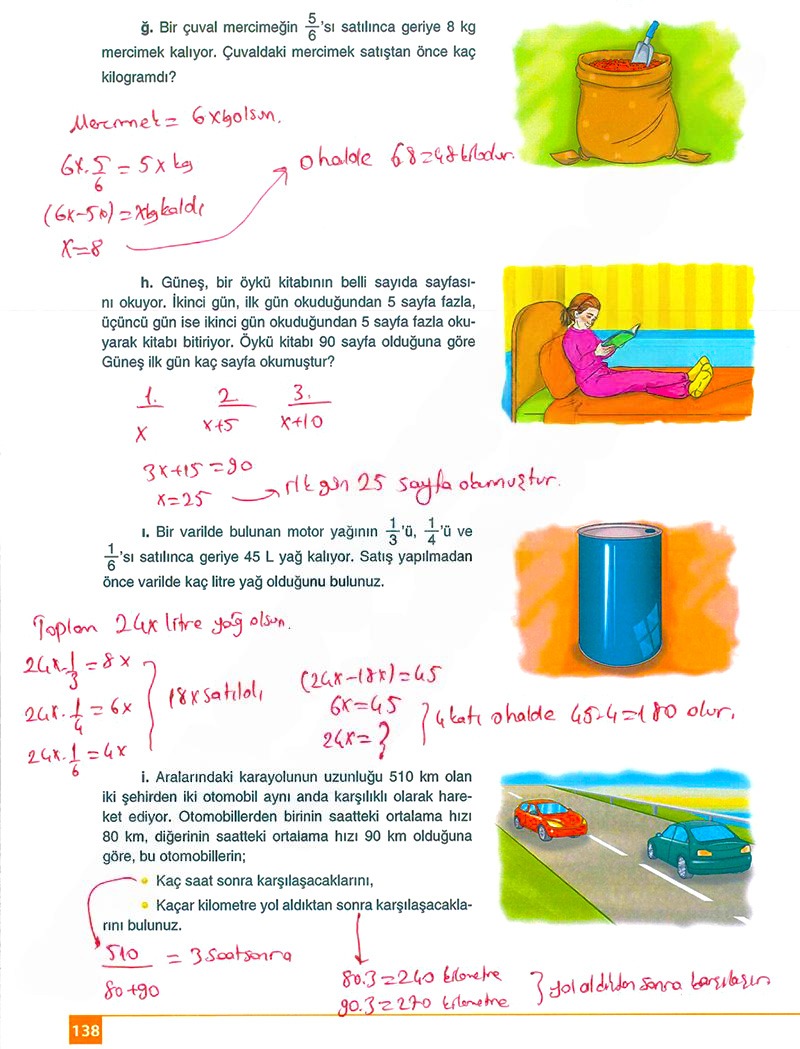 ğ. Bir çuval mercimeğin 5/6'sı satılınca geriye 8 kg
mercimek kalıyor. Çuvaldaki mercimek satıştan önce kaç
kilogramdı?
Mercimek = 6x kg olsun.
6x.5/6 = 5x kg
(6x-5x) = x kg kaldı
x=8
o halde 6.8=48 kilodur.
h. Güneş, bir öykü kitabının belli sayıda sayfası-
nı okuyor. İkinci gün, ilk gün okuduğundan 5 sayfa fazla,
üçüncü gün ise ikinci gün okuduğundan 5 sayfa fazla oku-
yarak kitabı bitiriyor. Öykü kitabı 90 sayfa olduğuna göre
Güneş ilk gün kaç sayfa okumuştur?
1. 2. 3.
x x+5 x+10
3x+15=90
x=25 ilk gün 25 sayfa okumuştur.
ı. Bir varilde bulunan motor yağının 1/3'ü, 1/4'ü ve
1/6'sı satılınca geriye 45 L yağ kalıyor. Satış yapılmadan
önce varilde kaç litre yağ olduğunu bulunuz.
Toplam 24x litre yağ olsun.
24x.1/3 = 8x
24x.1/4 = 6x
24x.1/6 = 4x
18x satıldı
(24x-18x)=45
6x=45
24x=?
4 katı o halde 45.4=180 olur.
i. Aralarındaki karayolunun uzunluğu 510 km olan
iki şehirden iki otomobil aynı anda karşılıklı olarak hare-
ket ediyor. Otomobillerden birinin saatteki ortalama hızı
80 km, diğerinin saatteki ortalama hızı 90 km olduğuna
göre, bu otomobillerin;
• Kaç saat sonra karşılaşacaklarını,
• Kaçar kilometre yol aldıktan sonra karşılaşacakla-
rını bulunuz.
510/80+90 = 3 saat sonra
80.3=240 kilometre
90.3=270 kilometre
yol aldıktan sonra karşılaşır.
138